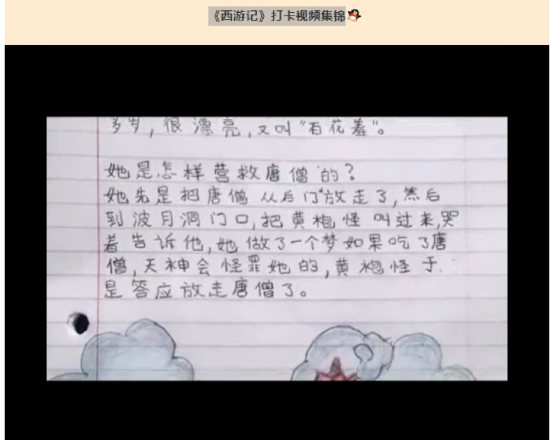 《西游记》打卡视频集锦
多岁，很漂亮，又叫"百花羞"。
她是怎样营救唐僧的？
她先是把唐僧从后门放走了，然后
到波月洞门口，把黄袍怪叫过来，哭
着告诉他，她做了一个梦如果吃了唐
僧，天神会怪罪她的，黄袍怪于
是答应放走唐僧了。